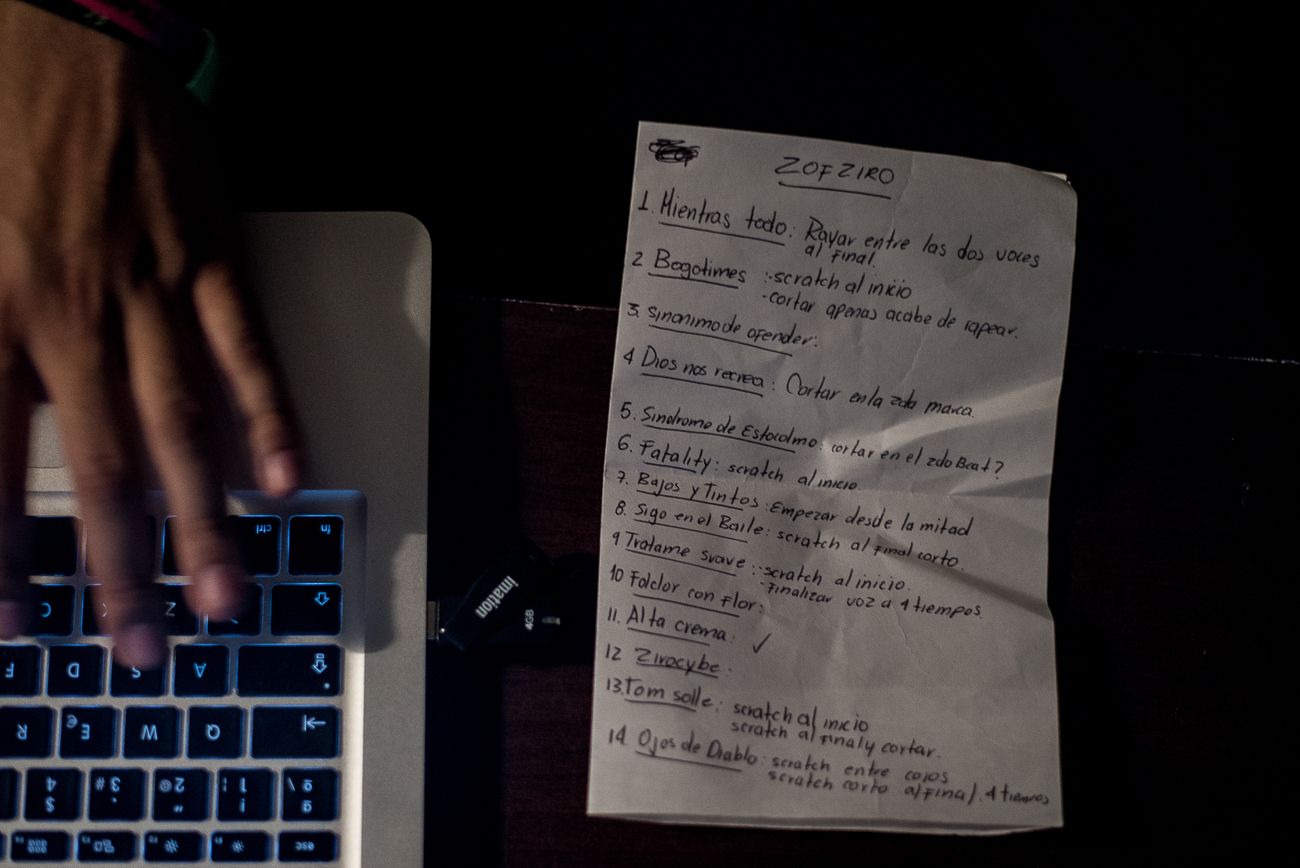 ZOFZIRO
1. Mientras todo: Rayar entre las dos voces
al final.
2 Bogotimes :-scratch al inicio
-cortar apenas acabe de rapear.
3. Sinonimo de ofender:
4 Dios nos recrea: Cortar en la 2da marca.
5. Sindrome de Estocolmo: cortar en el 2do Beat?
6. Fatality: scratch al inicio.
7. Bajos y Tintos: Empezar desde la mitad
8. Sigo en el Baile: scratch al final corto.
9 Tratame suave :-scratch al inicio.
-Finalizar voz a 4 tiempos.
10 Folclor con Flor:
11. Alta crema: ✓
12 Zirocybe.
13. Tom solle: scratch al inicio
scratch al final y cortar.
14. Ojos de Diablo: scratch entre coros
scratch corto al final. 4 tiempos
imation
4GB
fn
ctrl
Z
C
A
S
D
F
Q
W
E €
R
esc